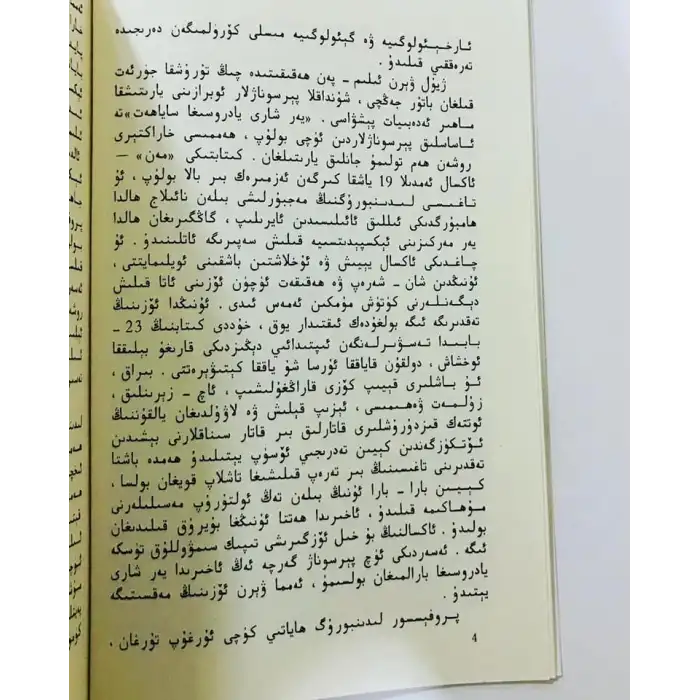 ئارخېئولوگىيە ۋە گېئولوگىيە مىسلى كۆرۈلمىگەن دەرىجىدە
تەرەققىي قىلىدۇ.
ژيۇل ۋېرن ئىلىم ـ پەن ھەقىقىتىدە چىڭ تۇرۇشقا جۈرئەت
قىلغان باتۇر جەڭچى، شۇنداقلا پېرسوناژلار ئوبرازىنى يارىتىشقا
ماھىر ئەدەبىيات پېشۋاسى. «يەر شارى يادروسىغا ساياھەت»تە
ئاساسلىق پېرسوناژلاردىن ئۈچى بولۇپ، ھەممىسى خاراكتېرى
روشەن ھەم تولىمۇ جانلىق يارىتىلغان. كىتابتىكى «مەن» —
ئاكسال ئەمدىلا 19 ياشقا كىرگەن ئەزىمىرەك بىر بالا بولۇپ، ئۇ
تاغىسى لىدىنبورۇگنىڭ مەجبۇرلىشى بىلەن نائىلاج ھالدا
ھامبۇرگدىكى ئىللىق ئائىلىسىدىن ئايرىلىپ، گاڭگىرىغان ھالدا
يەر مەركىزىنى ئېكسپېدىتسىيە قىلىش سەپىرىگە ئاتلىنىدۇ. ئۇ
چاغدىكى ئاكسال يېيىش ۋە ئۇخلاشتىن باشقىنى ئويلىمايتتى،
ئۇنىڭدىن شان ـ شەرەپ ۋە ھەقىقەت ئۈچۈن ئۆزىنى ئاتا قىلىش
دېگەنلەرنى كۈتۈش مۇمكىن ئەمەس ئىدى. ئۇنىڭدا ئۆزىنىڭ
تەقدىرىگە ئىگە بولغۇدەك ئىقتىدار يوق، خۇددى كىتابنىڭ 23 ـ
بابىدا تەسۋىرلەنگەن ئىپتىدائىي دېڭىزدىكى قارىغۇ بېلىققا
ئوخشاش، دولقۇن قاياققا ئۇرسا شۇ ياققا كېتىۋېرەتتى. بىراق،
ئۇ باشلىرى قېيىپ كۆزى قاراڭغۇلىشىپ، ئاچ ـ زېرىنلىق،
زۇلمەت ۋەھىمىسى، ئېزىپ قېلىش ۋە لاۋۇلدىغان يالقۇننىڭ
ئوتتەك قىزدۇرۇشلىرى قاتارلىق بىر قاتار سىناقلارنى بېشىدىن
ئۆتكۈزگەندىن كېيىن تەدرىجىي ئۆسۈپ يېتىلىدۇ ھەمدە باشتا
تەقدىرىنى تاغىسىنىڭ بىر تەرەپ قىلىشىغا تاشلاپ قويغان بولسا،
كېيىن بارا ـ بارا ئۇنىڭ بىلەن تەڭ ئولتۇرۇپ مەسىلىلەرنى
مۇھاكىمە قىلىدۇ، ئاخىرىدا ھەتتا ئۇنىڭغا بۇيرۇق قىلىدىغان
بولىدۇ. ئاكسالنىڭ بۇ خىل ئۆزگىرىشى تىپىك سىمۋوللۇق تۈسكە
ئىگە. ئەسەردىكى ئۈچ پېرسوناژ گەرچە ئەڭ ئاخىرىدا يەر شارى
يادروسىغا بارالمىغان بولسىمۇ، ئەمما ۋېرن ئۆزىنىڭ مەقسىتىگە
يېتىدۇ.
پروفېسسور لىدىنبورۇگ ھاياتىي كۈچى ئۇرغۇپ تۇرغان،
4